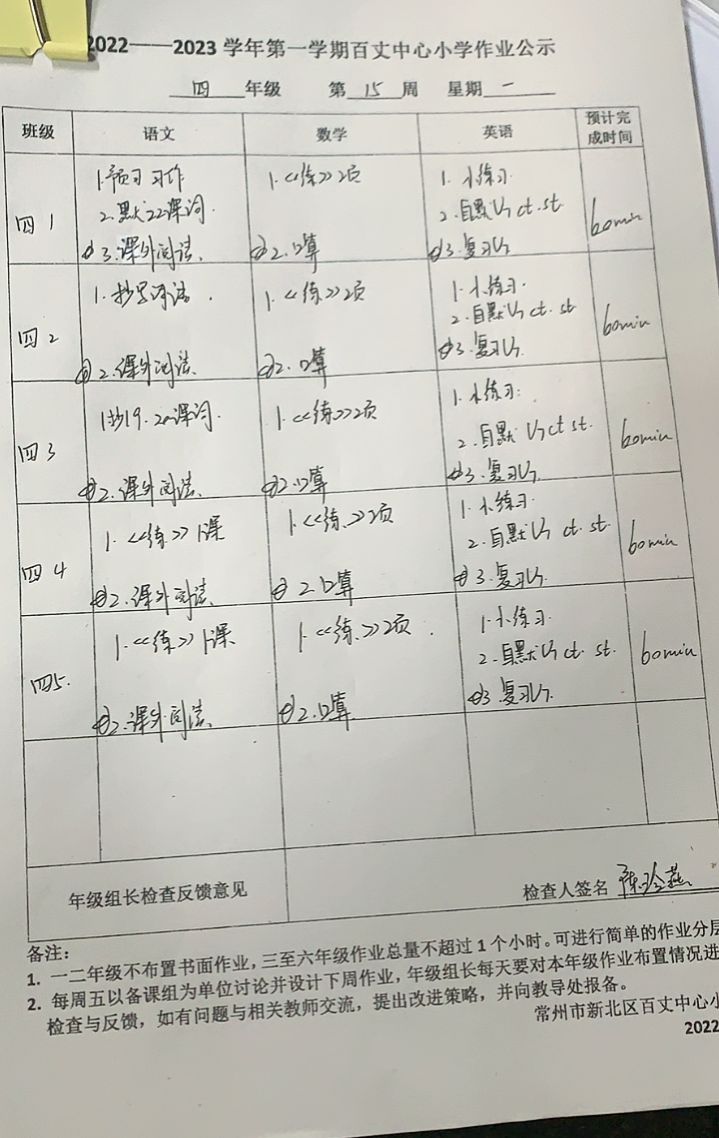 2022——2023 学年第一学期百丈中心小学作业公示
四 年级 第 15 周 星期 一
班级 语文 数学 英语 预计完成时间
四1
1.预习 习作
2.默22课词.
3.课外阅读.
1.<<练>>2页
2.口算
1. 小练习.
2.自默U7 ct.st.
3.复习U7
60min
四2
1.抄写
2.课外阅读.
1.<<练>>2页
2.口算
1.小练习.
2.自默U7 ct. st
3.复习U7.
60min
四3
1抄19. 课词.
2.课外阅读.
1.<<练>>2页
2.口算
1.小练习:
2.自默 U7 ct st.
3.复习U7
60min
四4
1.<<练>>1课
2.课外阅读.
1.<<练>>2页
2.口算
1.小练习.
2.自默U7 ct. st.
3.复习U7.
60min
四5.
1.<<练>>1课
2.课外阅读.
1.<<练>>2页.
2.口算
1.小练习.
2.自默U7 ct. st.
3 复习U7.
60min
年级组长检查反馈意见
检查人签名
备注:
1. 一二年级不布置书面作业,三至六年级作业总量不超过 1 个小时。可进行简单的作业分层
2. 每周五以备课组为单位讨论并设计下周作业,年级组长每天要对本年级作业布置情况进
检查与反馈,如有问题与相关教师交流,提出改进策略,并向教导处报备。
常州市新北区百丈中心小
2022